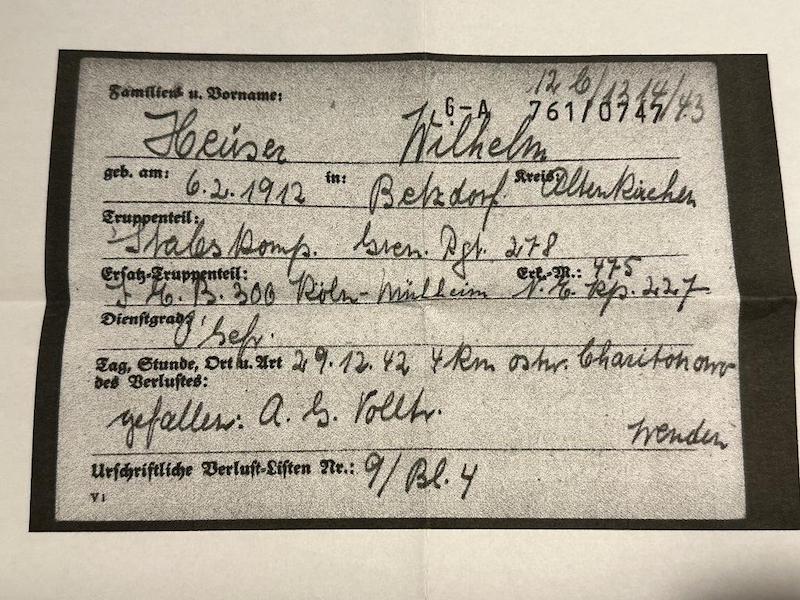 12 6/1314/43
Familien u. Vorname:
G-A 761/0747
Heuser Wilhelm
geb. am: 6.2.1912 in: Betzdorf Kreis: Altenkirchen
Truppenteil:
Stabs Komp. Gren. Rgt. 278
Ersatz-Truppenteil: Erk.-M.: 475
J. E. B. 300 Köln-Mülheim N. E. Kp. 227
Dienstgrad: O'Gefr.
Tag, Stunde, Ort u. Art 29.12.42 4 km ostw. Charitonowo
des Verlustes:
gefallen: A. G. Volltr.
wenden
Urschriftliche Verlust-Listen Nr.: 9/Bl. 4
V1